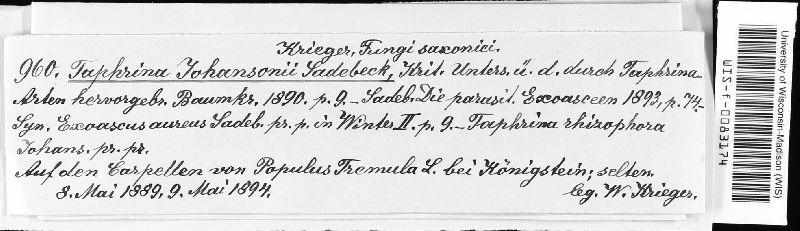 Krieger, Fungi saxonici.
960. Taphrina Johansonii Sadebeck, Krit. Unters. ü. d. durch Taphrina-
Arten hervorgebr. Baumkr. 1890. p. 9. – Sadeb. Die parasit. Exoasceen 1893, p. 74. –
Syn. Exoascus aureus Sadeb. pr. p. in Winter II. p. 9. – Taphrina rhizophora
Johans. pr. pr.
Auf den Carpellen von Populus Tremula L. bei Königstein; selten.
8. Mai 1889, 9. Mai 1894. leg. W. Krieger.
University of Wisconsin-Madison (WIS)
WIS-F-0083174